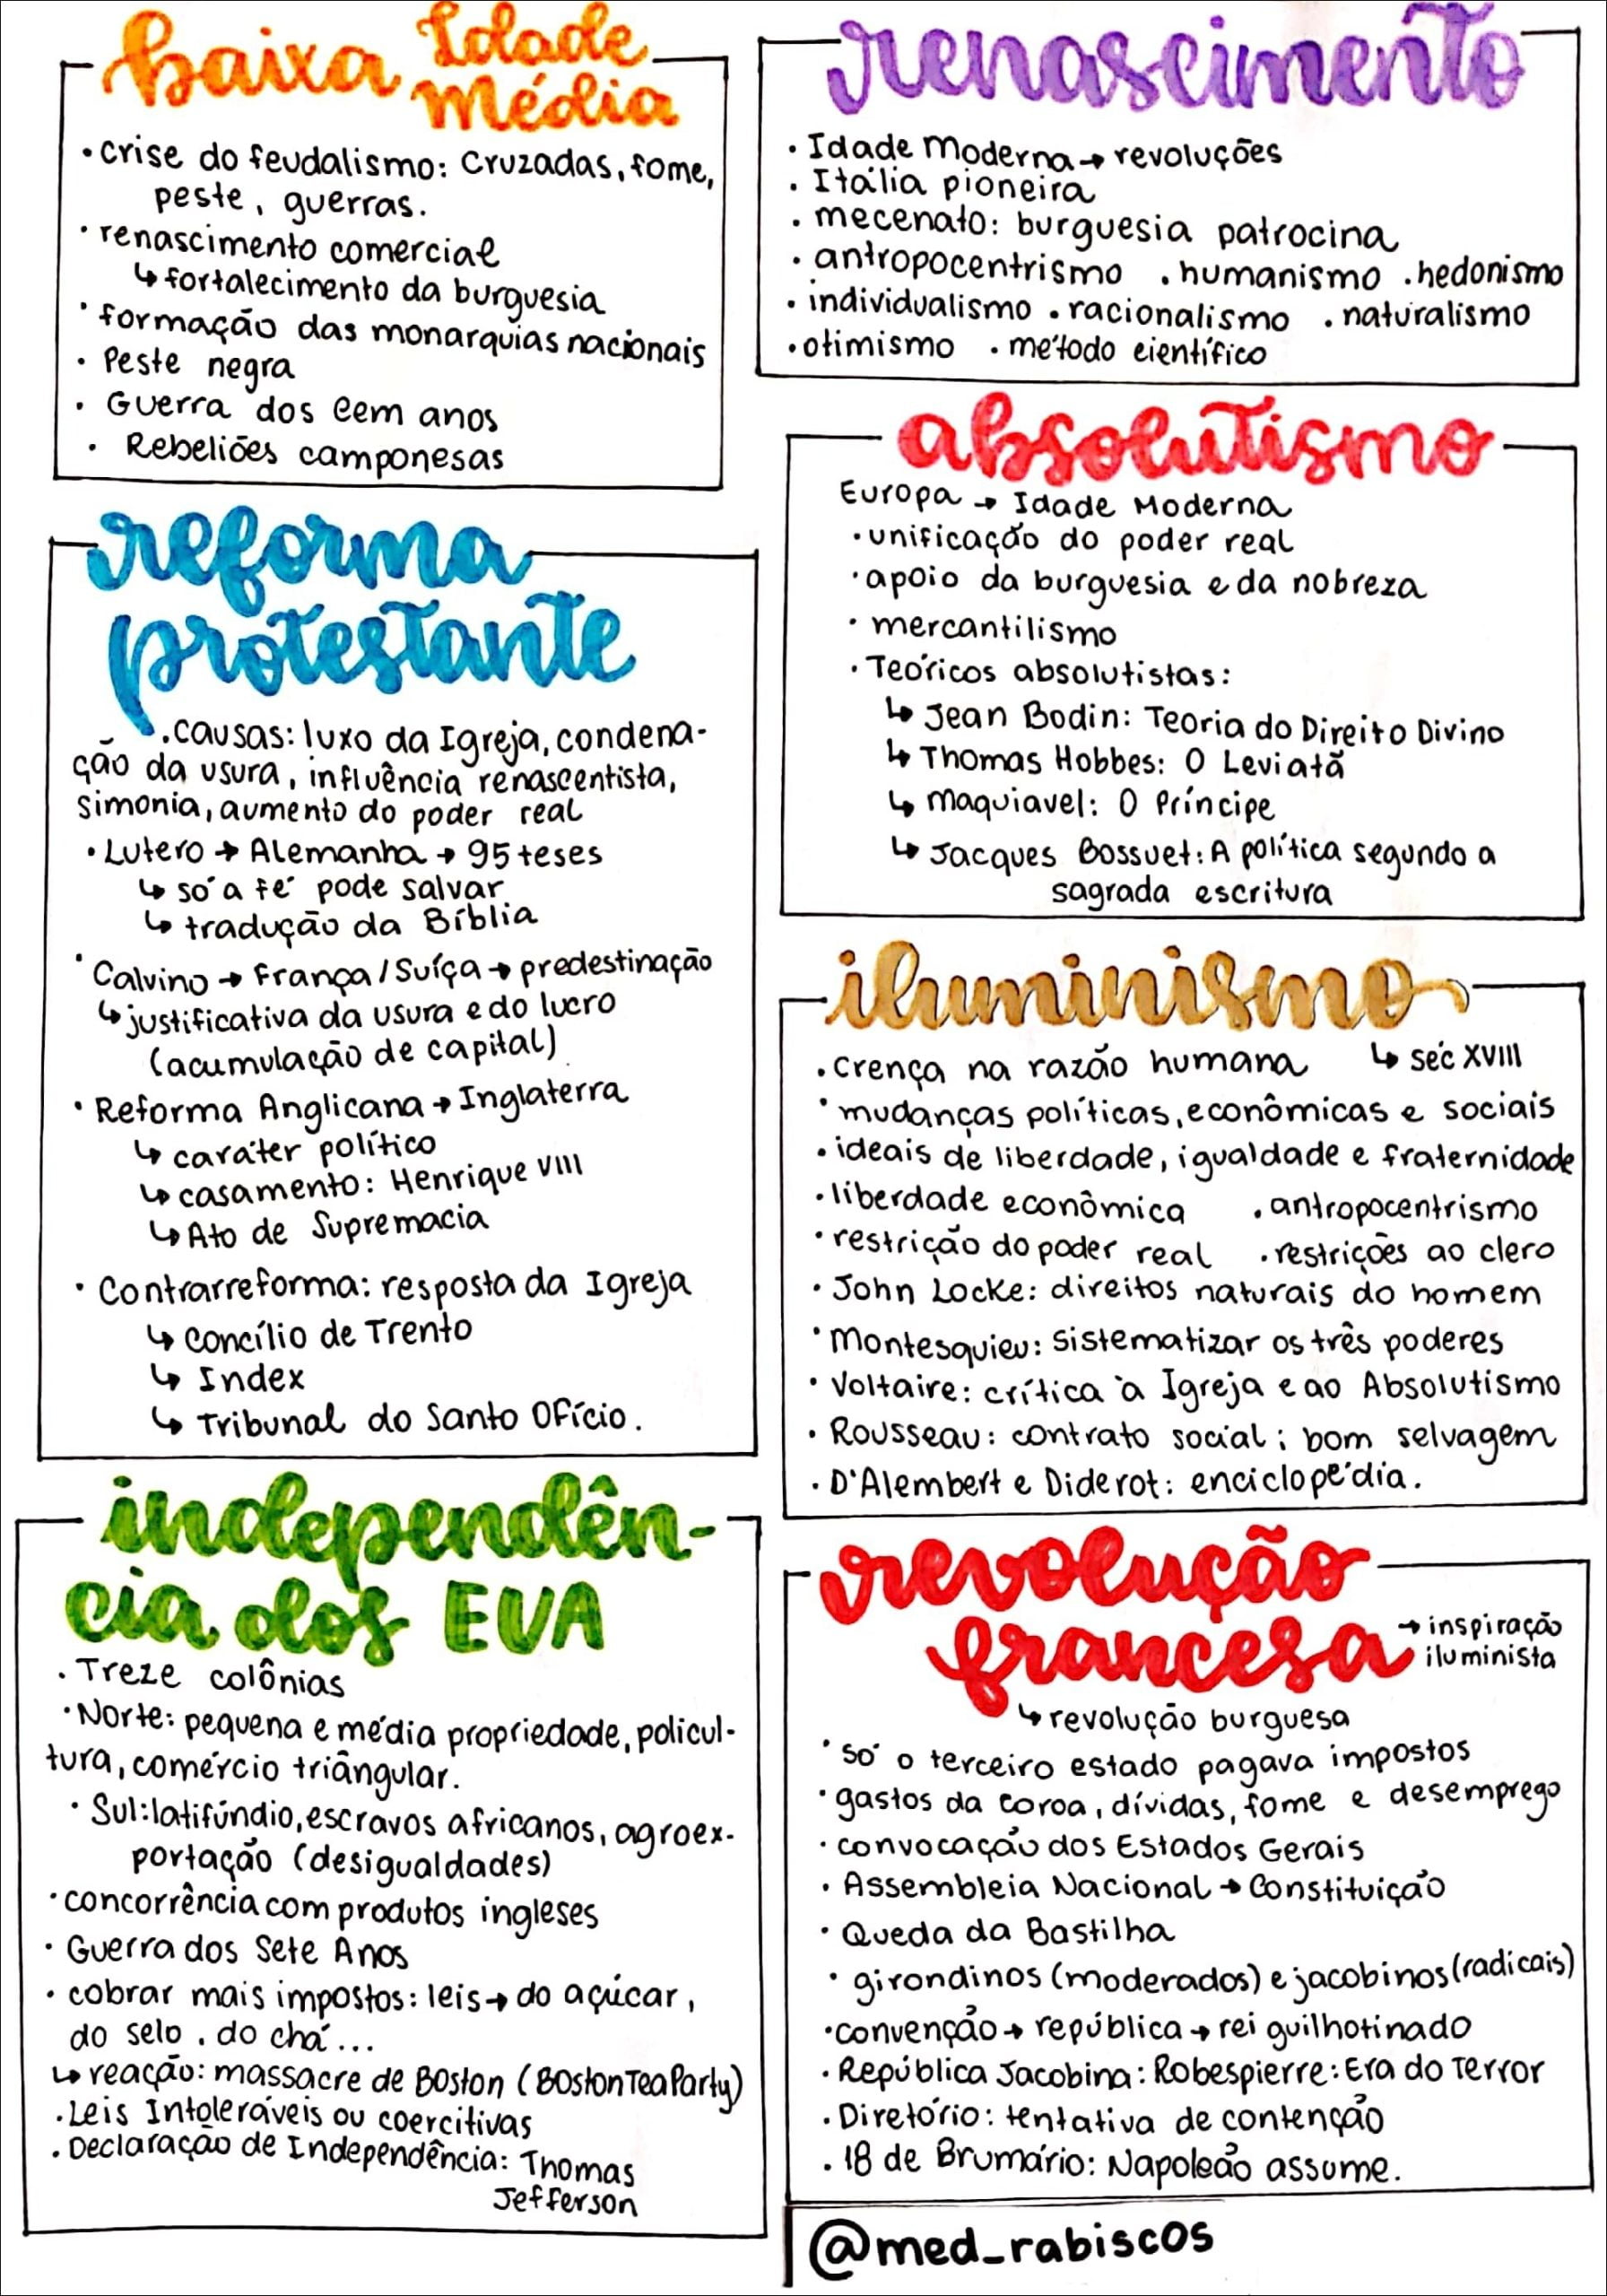 baixa Idade Média
• crise do feudalismo: Cruzadas, fome,
peste, guerras.
• renascimento comercial
↳ fortalecimento da burguesia
• formação das monarquias nacionais
• Peste negra
• Guerra dos cem anos
• Rebeliões camponesas
renascimento
• Idade Moderna → revoluções
• Itália pioneira
• mecenato: burguesia patrocina
• antropocentrismo • humanismo • hedonismo
• individualismo • racionalismo • naturalismo
• otimismo • método científico
absolutismo
Europa → Idade Moderna
• unificação do poder real
• apoio da burguesia e da nobreza
• mercantilismo
• Teóricos absolutistas:
↳ Jean Bodin: Teoria do Direito Divino
↳ Thomas Hobbes: O Leviatã
↳ Maquiavel: O Príncipe
↳ Jacques Bossuet: A política segundo a
sagrada escritura
reforma
protestante
• causas: luxo da Igreja, condena-
ção da usura, influência renascentista,
simonia, aumento do poder real
• Lutero → Alemanha → 95 teses
↳ só a fé pode salvar
↳ tradução da Bíblia
• Calvino → França/Suíça → predestinação
↳ justificativa da usura e do lucro
(acumulação de capital)
• Reforma Anglicana → Inglaterra
↳ caráter político
↳ casamento: Henrique VIII
↳ Ato de Supremacia
• Contrarreforma: resposta da Igreja
↳ Concílio de Trento
↳ Index
↳ Tribunal do Santo Ofício.
iluminismo
↳ séc XVIII
• crença na razão humana
• mudanças políticas, econômicas e sociais
• ideais de liberdade, igualdade e fraternidade
• liberdade econômica • antropocentrismo
• restrição do poder real • restrições ao clero
• John Locke: direitos naturais do homem
• Montesquieu: sistematizar os três poderes
• Voltaire: crítica à Igreja e ao Absolutismo
• Rousseau: contrato social; bom selvagem
• D'Alembert e Diderot: enciclopédia.
independên-
cia dos EUA
• Treze colônias
• Norte: pequena e média propriedade, policul-
tura, comércio triângular.
• Sul: latifúndio, escravos africanos, agroex-
portação (desigualdades)
• concorrência com produtos ingleses
• Guerra dos Sete Anos
• cobrar mais impostos: leis → do açúcar,
do selo, do chá...
↳ reação: massacre de Boston (Boston Tea Party)
• Leis Intoleráveis ou coercitivas
• Declaração de Independência: Thomas
Jefferson
revolução
francesa
→ inspiração
iluminista
↳ revolução burguesa
• só o terceiro estado pagava impostos
• gastos da coroa, dívidas, fome e desemprego
• convocação dos Estados Gerais
• Assembleia Nacional → Constituição
• Queda da Bastilha
• girondinos (moderados) e jacobinos (radicais)
• convenção → república → rei guilhotinado
• República Jacobina: Robespierre: Era do Terror
• Diretório: tentativa de contenção
• 18 de Brumário: Napoleão assume.
@med_rabiscos